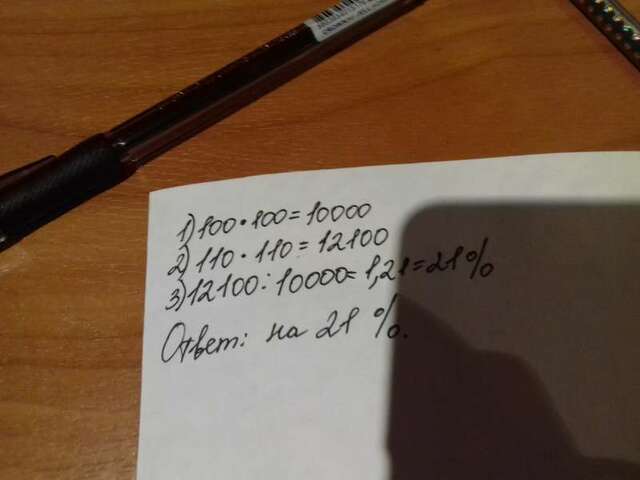 1) 100 · 100 = 10000
2) 110 · 110 = 12100
3) 12100 : 10000 = 1,21 = 21%
Ответ: на 21%.